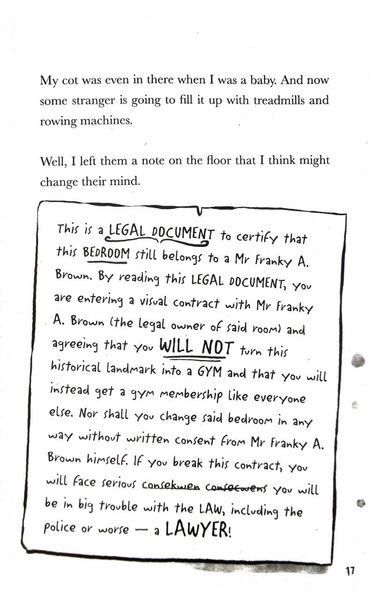 My cot was even in there when I was a baby. And now
some stranger is going to fill it up with treadmills and
rowing machines.
Well, I left them a note on the floor that I think might
change their mind.
This is a LEGAL DOCUMENT to certify that
this BEDROOM still belongs to a Mr Franky A.
Brown. By reading this LEGAL DOCUMENT, you
are entering a visual contract with Mr Franky
A. Brown (the legal owner of said room) and
agreeing that you WILL NOT turn this
historical landmark into a GYM and that you will
instead get a gym membership like everyone
else. Nor shall you change said bedroom in any
way without written consent from Mr Franky A.
Brown himself. If you break this contract, you
will face serious consekwen consecwens you will
be in big trouble with the LAW, including the
police or worse — a LAWYER!
17